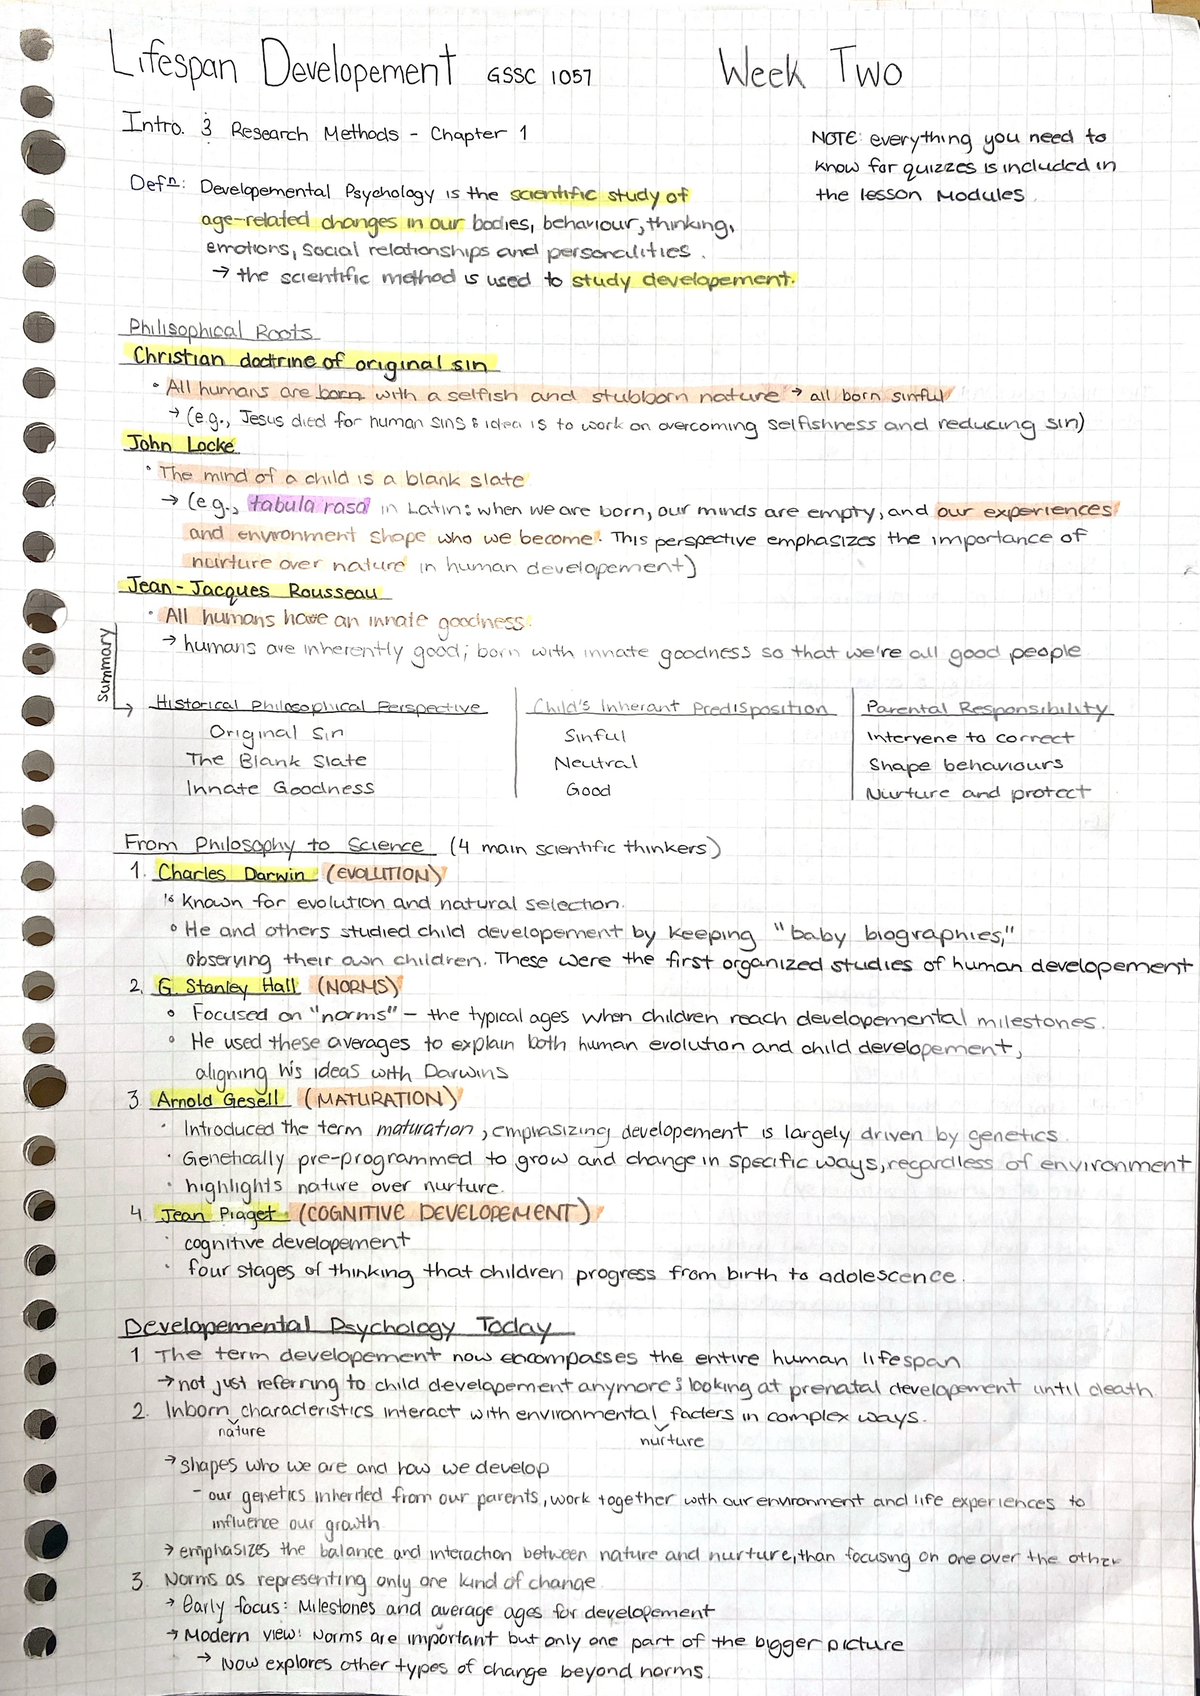 Lifespan Developement GSSC 1057 Week Two
Intro. & Research Methods - Chapter 1
NOTE: everything you need to
know for quizzes is included in
the lesson modules.
Defⁿ: Developemental Psychology is the scientific study of
age-related changes in our bodies, behaviour, thinking,
emotions, social relationships and personalities.
→ the scientific method is used to study developement.
Philisophical Roots
Christian doctrine of original sin
• All humans are born with a selfish and stubborn nature → all born sinful
→ (e.g., Jesus died for human sins & idea is to work on overcoming selfishness and reducing sin)
John Locke
• The mind of a child is a blank slate
→ (e.g., tabula rasa in Latin: when we are born, our minds are empty, and our experiences
and environment shape who we become. This perspective emphasizes the importance of
nurture over nature in human developement)
Jean-Jacques Rousseau
• All humans have an innate goodness.
→ humans are inherently good; born with innate goodness so that we're all good people
Summary
→ Historical Philosophical Perspective | Child's Inherant Predisposition | Parental Responsibility
Original Sin | Sinful | Intervene to correct
The Blank Slate | Neutral | Shape behaviours
Innate Goodness | Good | Nurture and protect
From Philosophy to Science (4 main scientific thinkers)
1. Charles Darwin (EVOLUTION)
• Known for evolution and natural selection.
• He and others studied child developement by keeping "baby biographies,"
observing their own children. These were the first organized studies of human developement
2. G. Stanley Hall (NORMS)
• Focused on "norms" - the typical ages when children reach developemental milestones.
• He used these averages to explain both human evolution and child developement,
aligning his ideas with Darwins
3. Arnold Gesell (MATURATION)
• Introduced the term maturation, emphasizing developement is largely driven by genetics.
• Genetically pre-programmed to grow and change in specific ways, regardless of environment
• highlights nature over nurture.
4. Jean Piaget (COGNITIVE DEVELOPEMENT)
• cognitive developement
• four stages of thinking that children progress from birth to adolescence.
Developemental Psychology Today
1 The term developement now encompasses the entire human lifespan
→ not just referring to child developement anymore & looking at prenatal developement until death
2. Inborn characteristics interact with environmental facters in complex ways.
nature nurture
→ shapes who we are and how we develop
- our genetics inherited from our parents, work together with our environment and life experiences to
influence our growth
→ emphasizes the balance and interaction between nature and nurture, than focusing on one over the other
3. Norms as representing only one kind of change
→ Early focus: Milestones and average ages for developement
→ Modern view: Norms are important but only one part of the bigger picture
→ Now explores other types of change beyond norms.